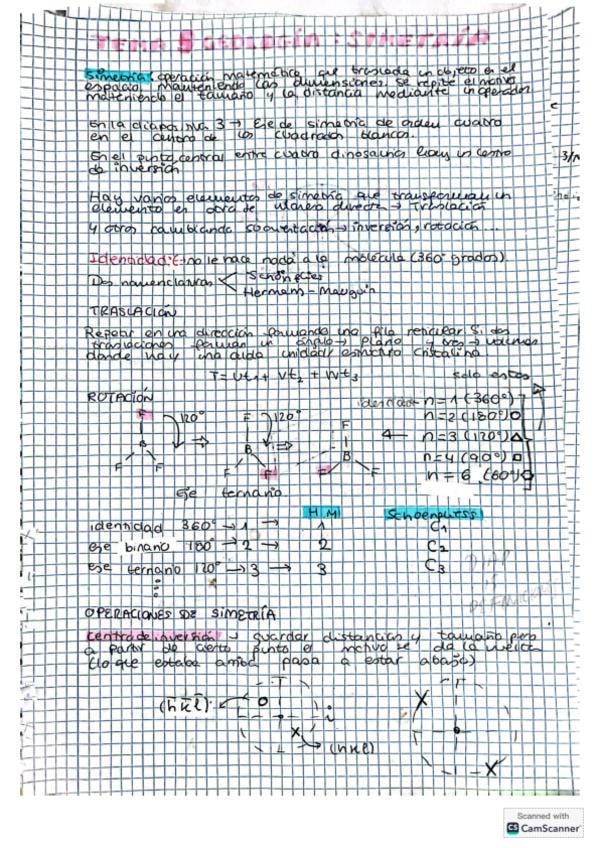 TEMA 5 GEOLOGÍA: SIMETRÍA
Simetría: operación matemática que traslada un objeto en el
espacio manteniendo las dimensiones. Se repite el motivo
manteniendo el tamaño y la distancia mediante un operador
En la diapositiva 3 → Eje de simetría de orden cuatro
en el centro de los cuadrados blancos.
En el punto central entre cuatro dinosaurios hay un centro
de inversión
Hay varios elementos de simetría que transforman un
elemento en otro de manera directa → Traslación
Y otros cambiando su orientación → inversión, rotación...
Identidad: E → no le hace nada a la molécula (360° grados).
Dos nomenclaturas
Schönflies
Hermann - Mauguin
TRASLACIÓN
Repetir en una dirección formando una fila reticular. Si dos
traslaciones forman un ángulo → plano y tres → volumen
donde hay una celda unidad / estructura cristalina
T = Ut1 + Vt2 + Wt3
solo estos
ROTACIÓN
identidad n=1 (360°)
n=2 (180°)
n=3 (120°) △
n=4 (90°) □
n=6 (60°)
F 120° ⇒ F 120° ⇒ F
B B B
F F F F F F
Eje ternario
H.M Schoenfliess
identidad 360° → 1 → 1 C1
eje binario 180° → 2 → 2 C2
eje ternario 120° → 3 → 3 C3
DIAP
OPERACIONES DE SIMETRÍA
Centro de inversión → guardar distancias y tamaño pero
a partir de cierto punto el motivo se da la vuelta
(lo que estaba arriba pasa a estar abajo)
(h̄k̄l̄) O i X
X (hkl) X
Scanned with
CS CamScanner